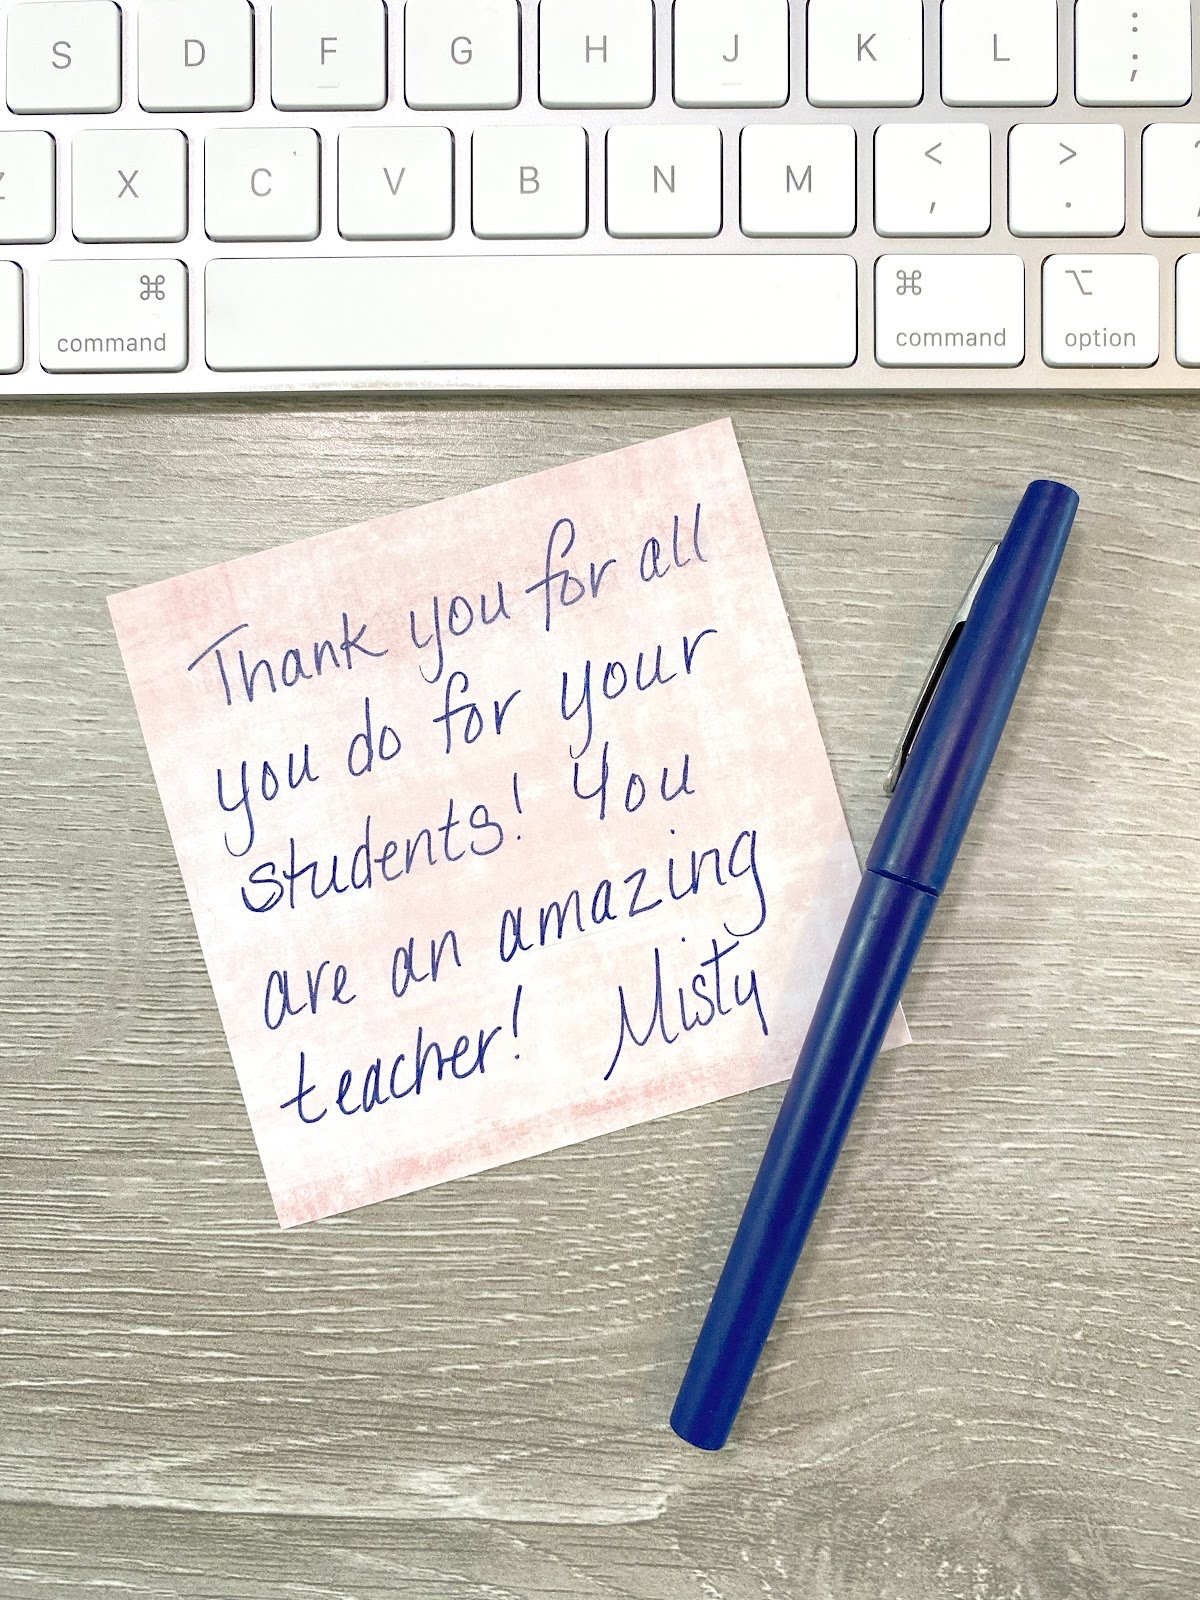 S D F G H J K L : ;
Z X C V B N M < , > .
⌘ command ⌘ command ⌥ option
Thank you for all
you do for your
students! You
are an amazing
teacher! Misty